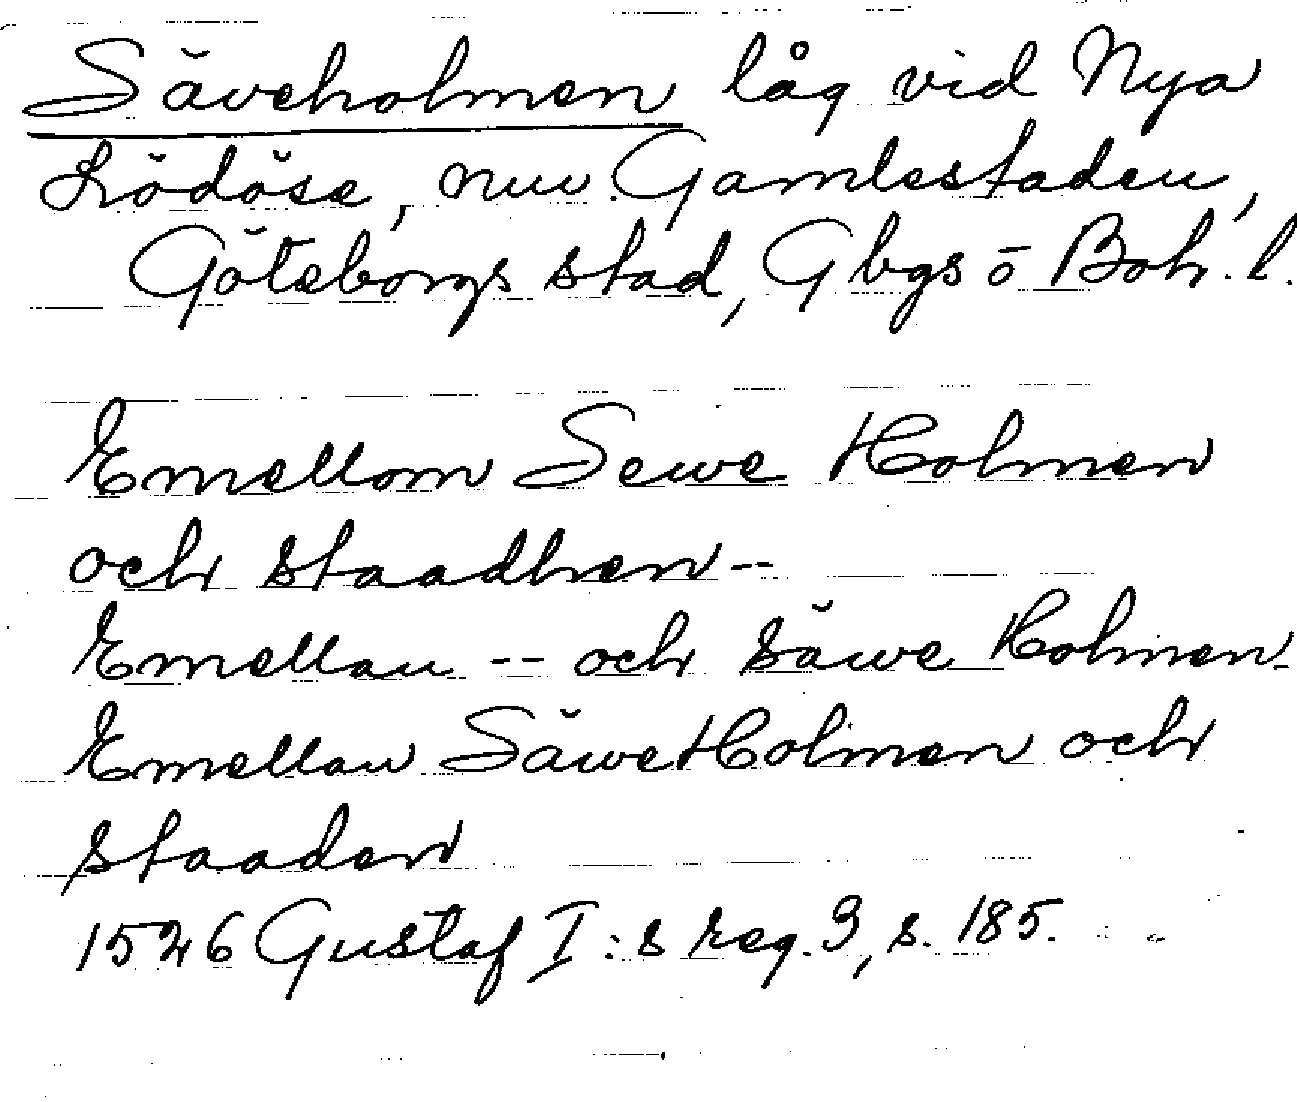 Säveholmen låg vid Nya
Lödöse, nuv. Gamlestaden,
Göteborgs stad, Gbgs o Boh. l.
Emellom Sewe Holmen
och staadhen --
Emellan -- och säwe Holmen
Emellan SäweHolmen och
staaden
1526 Gustaf I:s reg. 3, s. 185.